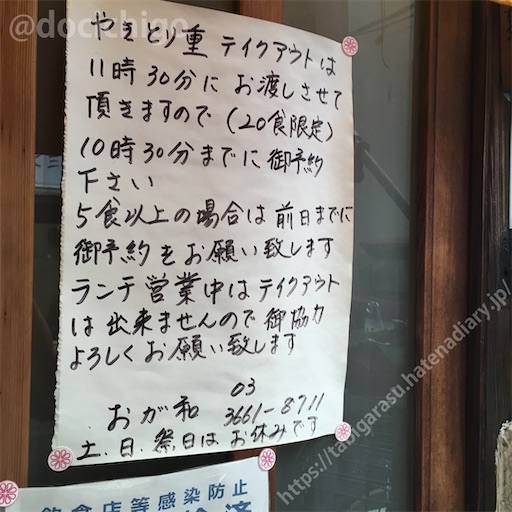 @docchigo
やきとり重 テイクアウトは
11時30分に お渡しさせて
頂きますので(20食限定)
10時30分までに御予約
下さい
5食以上の場合は前日までに
御予約をお願い致します
ランチ営業中はテイクアウト
は出来ませんので御協力
よろしくお願い致します
おが和 03
3661-8711
土.日.祭日はお休みです
飲食店等感染防止
https://tachigarasu.hatenadiary.jp/